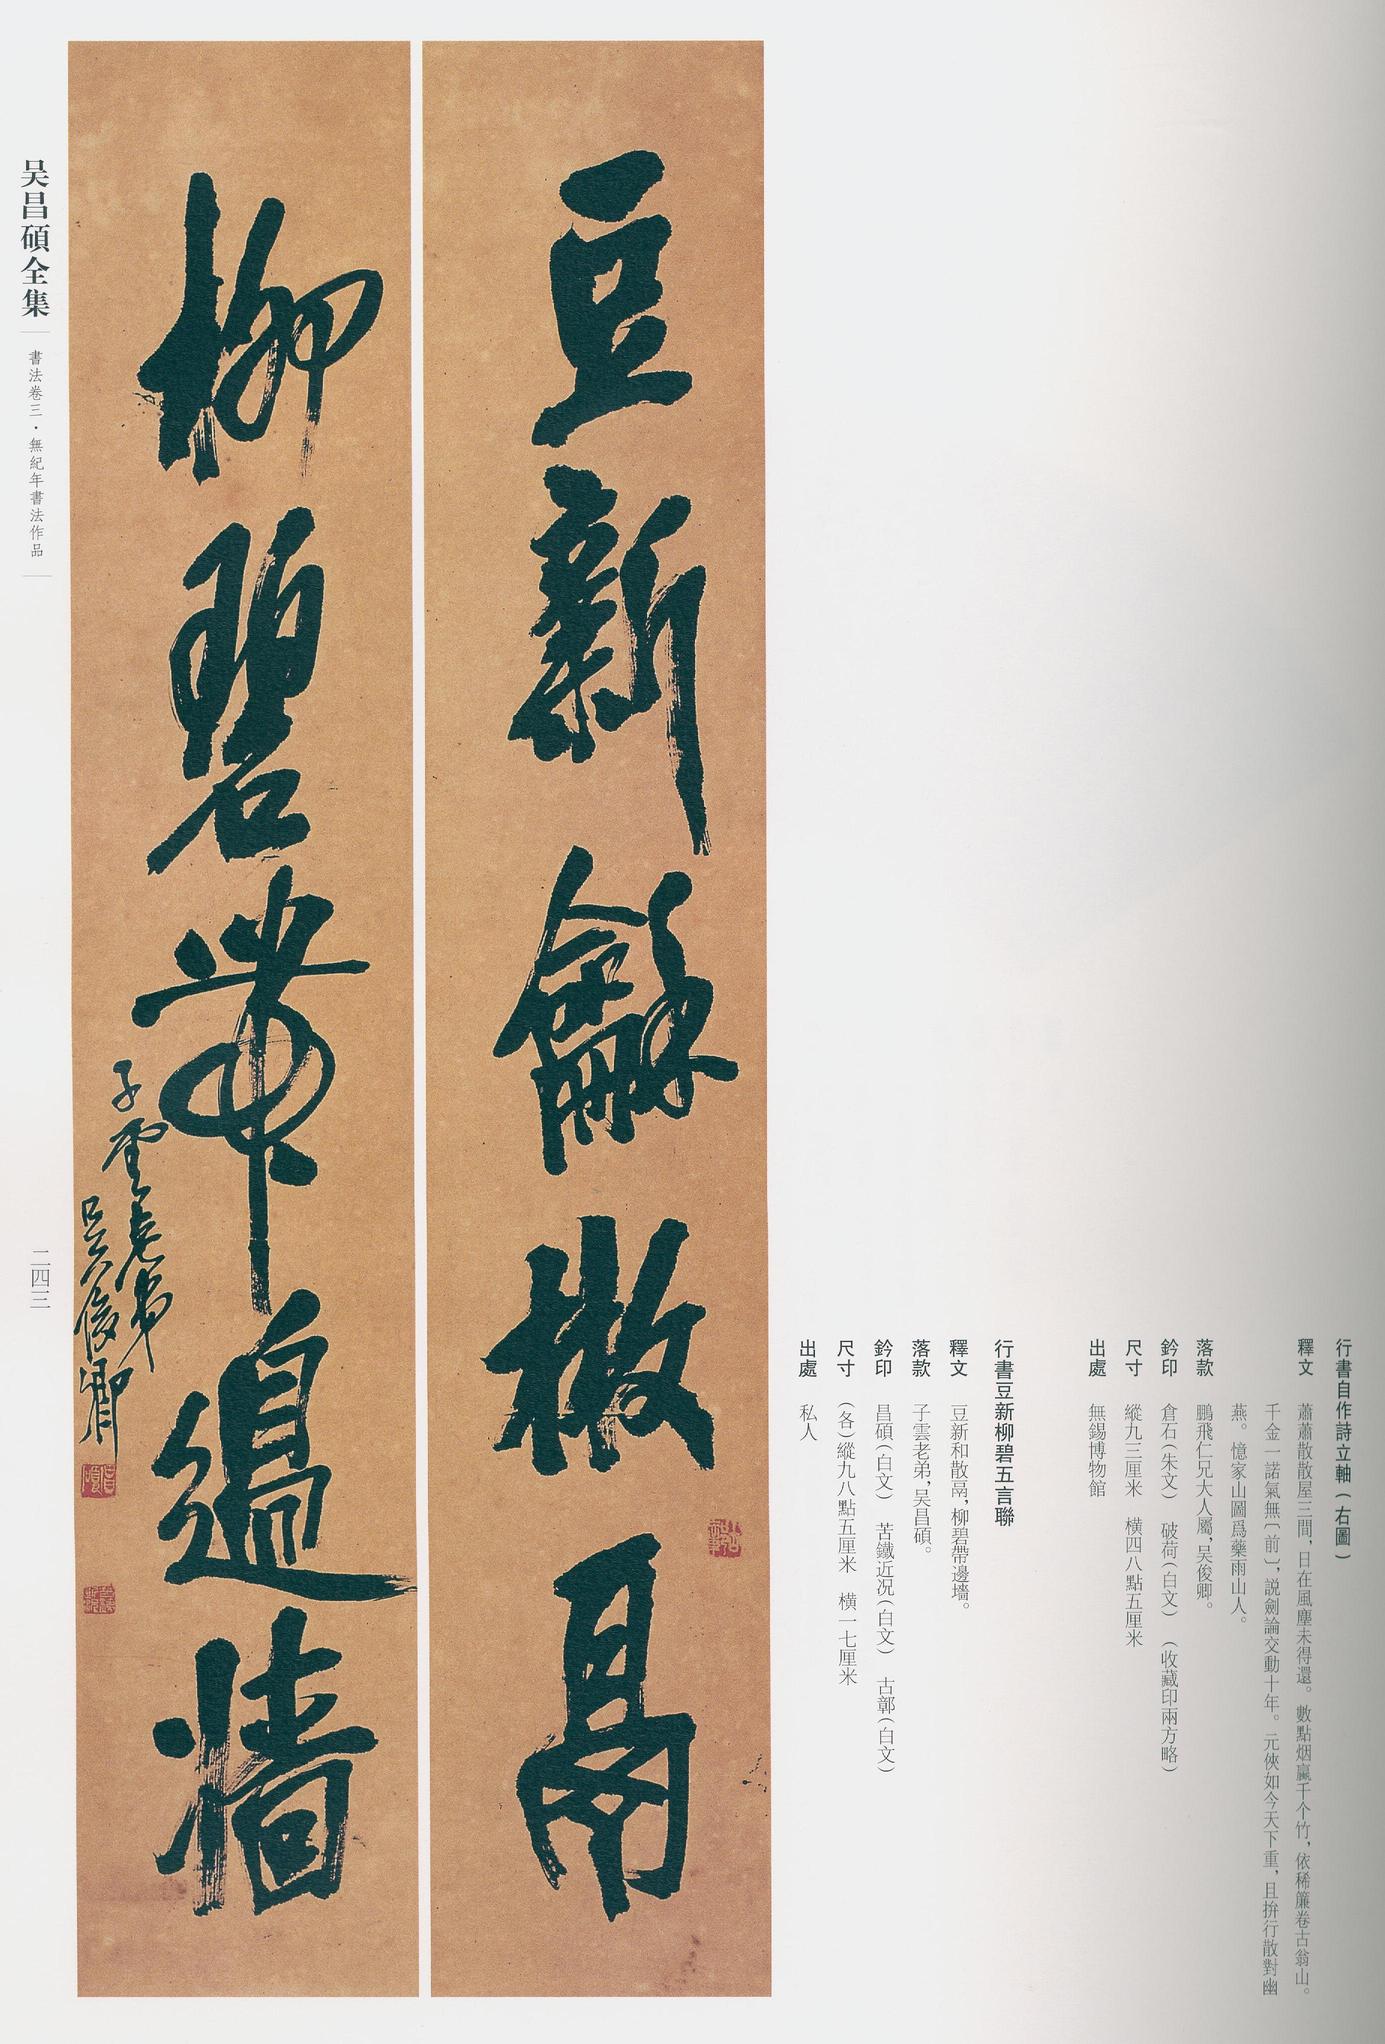 行書自作詩立軸（右圖）
釋文　蕭蕭散散屋三間，日在風塵未得還。數點烟嵐千个竹，依稀簾卷古翁山。
千金一諾氣無〔前〕，説劍論交動十年。元俠如今天下重，且拚行散對幽
燕。憶家山圖爲藥雨山人。
落款　鵬飛仁兄大人屬，吴俊卿。
鈐印　倉石（朱文）　破荷（白文）　（收藏印兩方略）
尺寸　縱九三厘米　橫四八點五厘米
出處　無錫博物館
行書豆新柳碧五言聯
釋文　豆新和散鬲，柳碧帶邊墻。
落款　子雲老弟，吴昌碩。
鈐印　昌碩（白文）　苦鐵近况（白文）　古鄣（白文）
尺寸　（各）縱九八點五厘米　橫一七厘米
出處　私人
豆新龢散鬲
柳碧帶邊牆
子雲老弟
吴俊卿
吴昌碩全集
書法卷三·無紀年書法作品
二四三